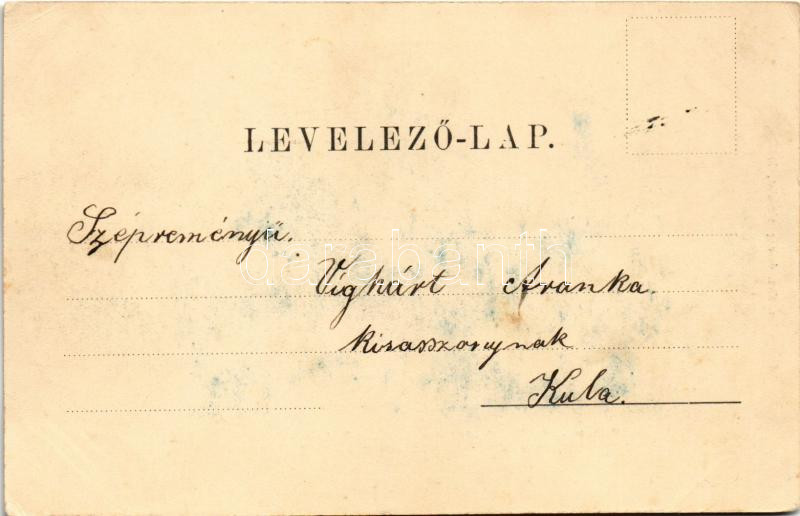 LEVELEZŐ-LAP.
Szépreményű.
darabanth
Vighárt Aranka.
kisasszonynak
Kula.